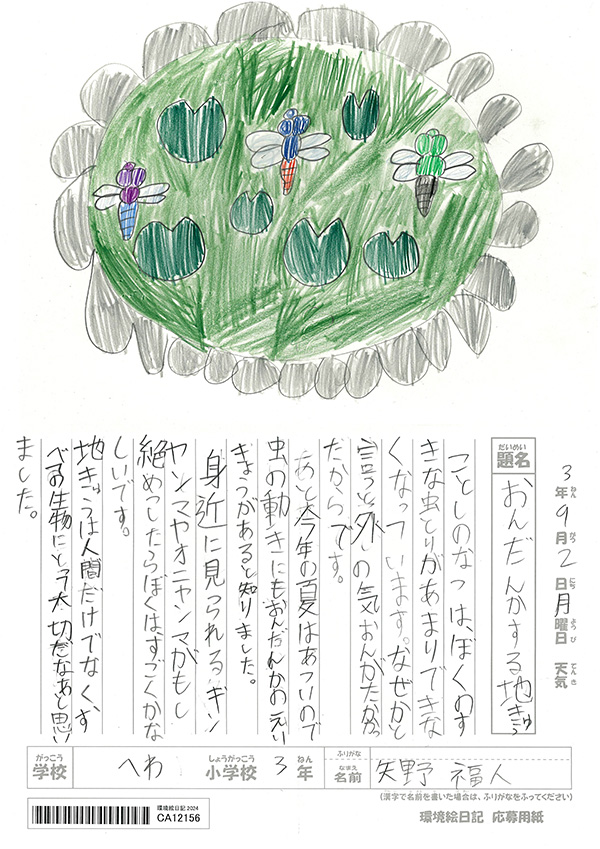 3年9月2日月曜日 天気
ねん がつ にち ようび てんき
だいめい
題名 おんだんかする地きゅう
ことしのなつは、ぼくのす
きな虫とりがあまりできな
くなっています。なぜかと
言うと外の気おんがたかっ
たからです。
あと今年の夏はあついので
虫の動きにもおんだんかのえい
きょうがあると知りました。
身近に見つられるギン
ヤンマやオニャンマがもし
絶めつしたらぼくはすごくかな
しいです。
地きゅうは人間だけでなく、す
べての生物にとって大切だなあと思い
ました。
がっこう しょうがっこう ねん ふりがな
学校 へわ 小学校 3年 なまえ 名前 矢野 福人
(漢字で名前を書いた場合は、ふりがなをふってください)
環境絵日記 2024
CA12156
環境絵日記 応募用紙